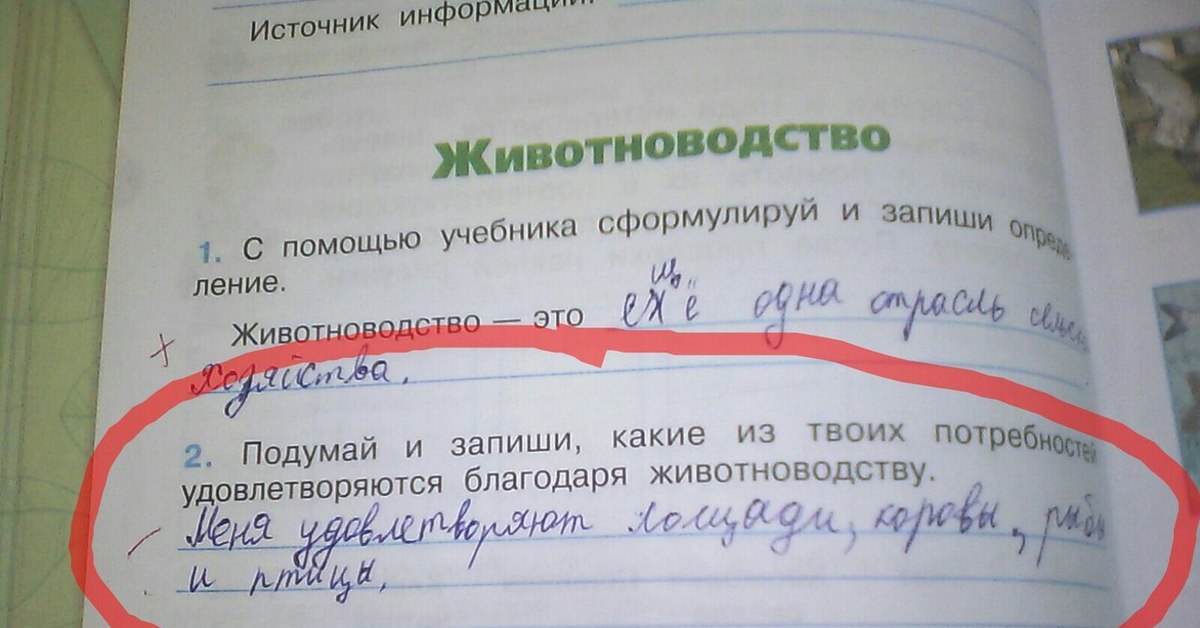 Источник информации:
Животноводство
1. С помощью учебника сформулируй и запиши опреде
ление.
Животноводство — это ещё одна отрасль сельск
хозяйства.
2. Подумай и запиши, какие из твоих потребностей
удовлетворяются благодаря животноводству.
Меня удовлетворяют лошади, коровы, рыбы
и птицы.